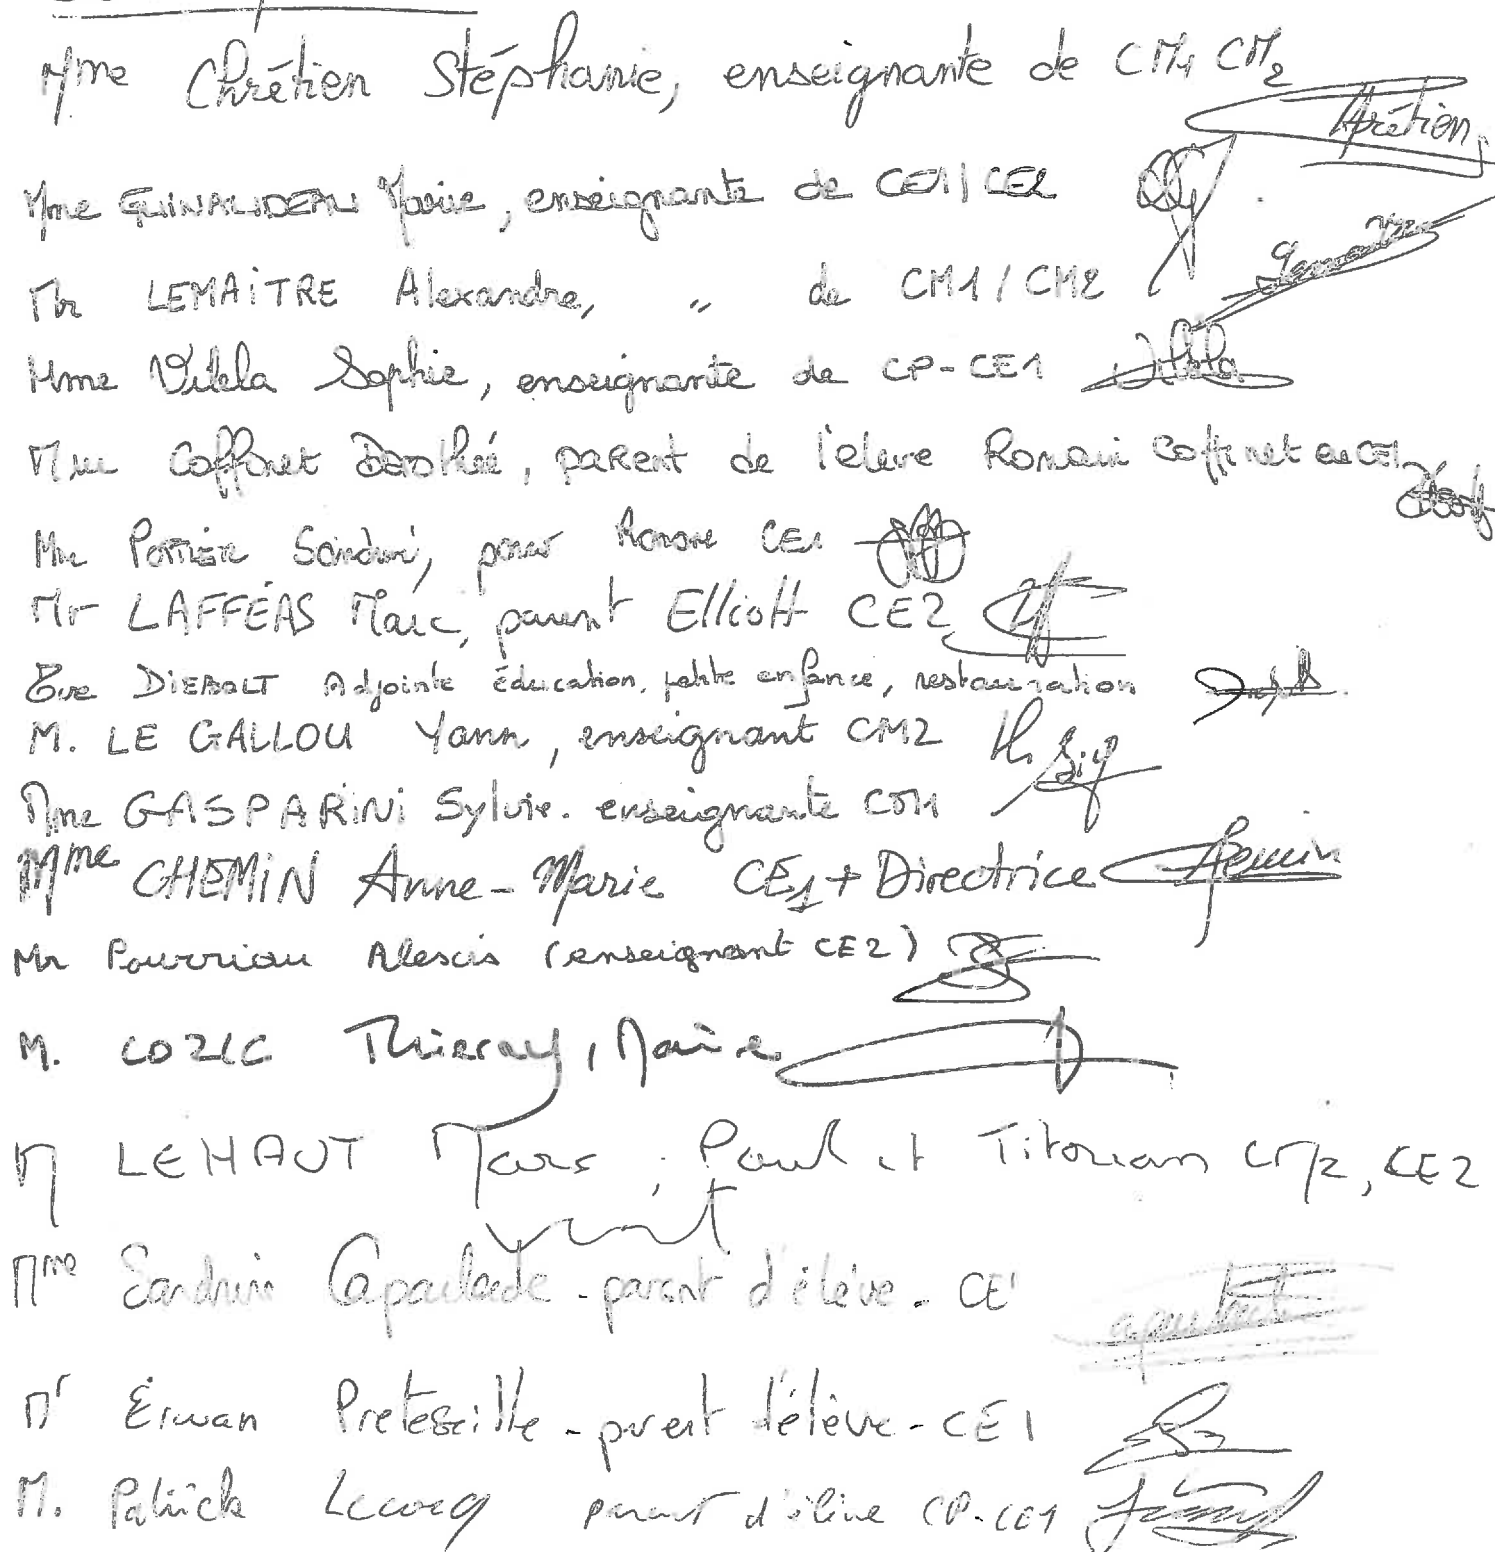 Mme Chrétien Stéphanie, enseignante de CM1 CM2
Chrétien
Mme GUINAUDEAU Marie, enseignante de CE1/CE2
Mr LEMAITRE Alexandre, " de CM1/CM2
Mme Vilela Sophie, enseignante de CP-CE1
Mme Coffinet Dorothée, parent de l'eleve Romain Coffinet en CE1
Mme POTTIER parent CE1
Mr LAFFÉAS Marc, parent Elliott CE2
Eve DIEBOLT Adjointe éducation, petite enfance, restauration
M. LE GALLOU Yann, enseignant CM2
Mme GASPARINI Sylvie. enseignante CM1
Mme CHEMIN Anne-Marie CE1 + Directrice Chemin
Mr Pourriau Alexis (enseignant CE2)
M. COZIC Thierry, Maire
M LEHAUT Marc, Paul et CM2, CE2
Mme Sandrine Capaclade - parent d'élève - CE1
Mr Erwan Preteseille - parent d'élève - CE1
M. Patrick Lecocq parent d'élève CP-CE1